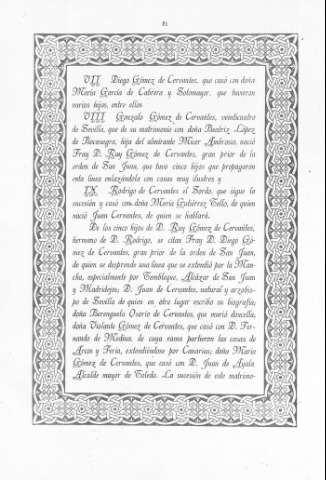 21
VII Diego Gómez de Cervantes, que casó con doña
María García de Cabrera y Sotomayor, que tuvieron
varios hijos, entre ellos
VIII Gonzalo Gómez de Cervantes, veinticuatro
de Sevilla, que de su matrimonio con doña Beatriz López
de Bocanegra, hija del almirante Micer Ambrosio, nació
Fray D. Ruy Gómez de Cervantes, gran prior de la
orden de San Juan, que tuvo cinco hijos que propagaron
esta línea enlazándola con casas muy ilustres y
IX Rodrigo de Cervantes el Sordo, que sigue la
sucesión y casó con doña María Gutiérrez Tello, de quien
nació Juan Cervantes, de quien se hablará.
De los cinco hijos de D. Ruy Gómez de Cervantes,
hermano de D. Rodrigo, se citan Fray D. Diego Gó-
mez de Cervantes, gran prior de la orden de San Juan,
de quien se desprende una línea que se extendió por la Man-
cha, especialmente por Tembleque, Alcázar de San Juan
y Madridejos; D. Juan de Cervantes, natural y arzobis-
po de Sevilla de quien en otro lugar escribo su biografía;
doña Berenguela Osorio de Cervantes, que murió doncella;
doña Violante Gómez de Cervantes, que casó con D. Fer-
nando de Medina, de cuya rama partieron las casas de
Arcos y Feria, extendiéndose por Canarias; doña María
Gómez de Cervantes, que casó con D. Juan de Ayala
Alcalde mayor de Toledo. La sucesión de este matrimo-